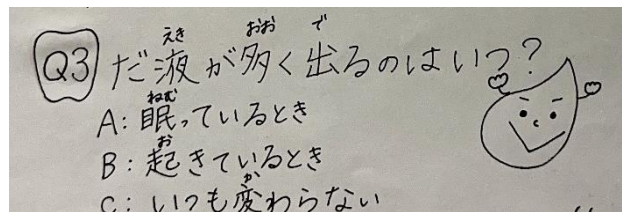 Q3 だ液が多く出るのはいつ?
A:眠っているとき
B:起きているとき
C:いつも変わらない